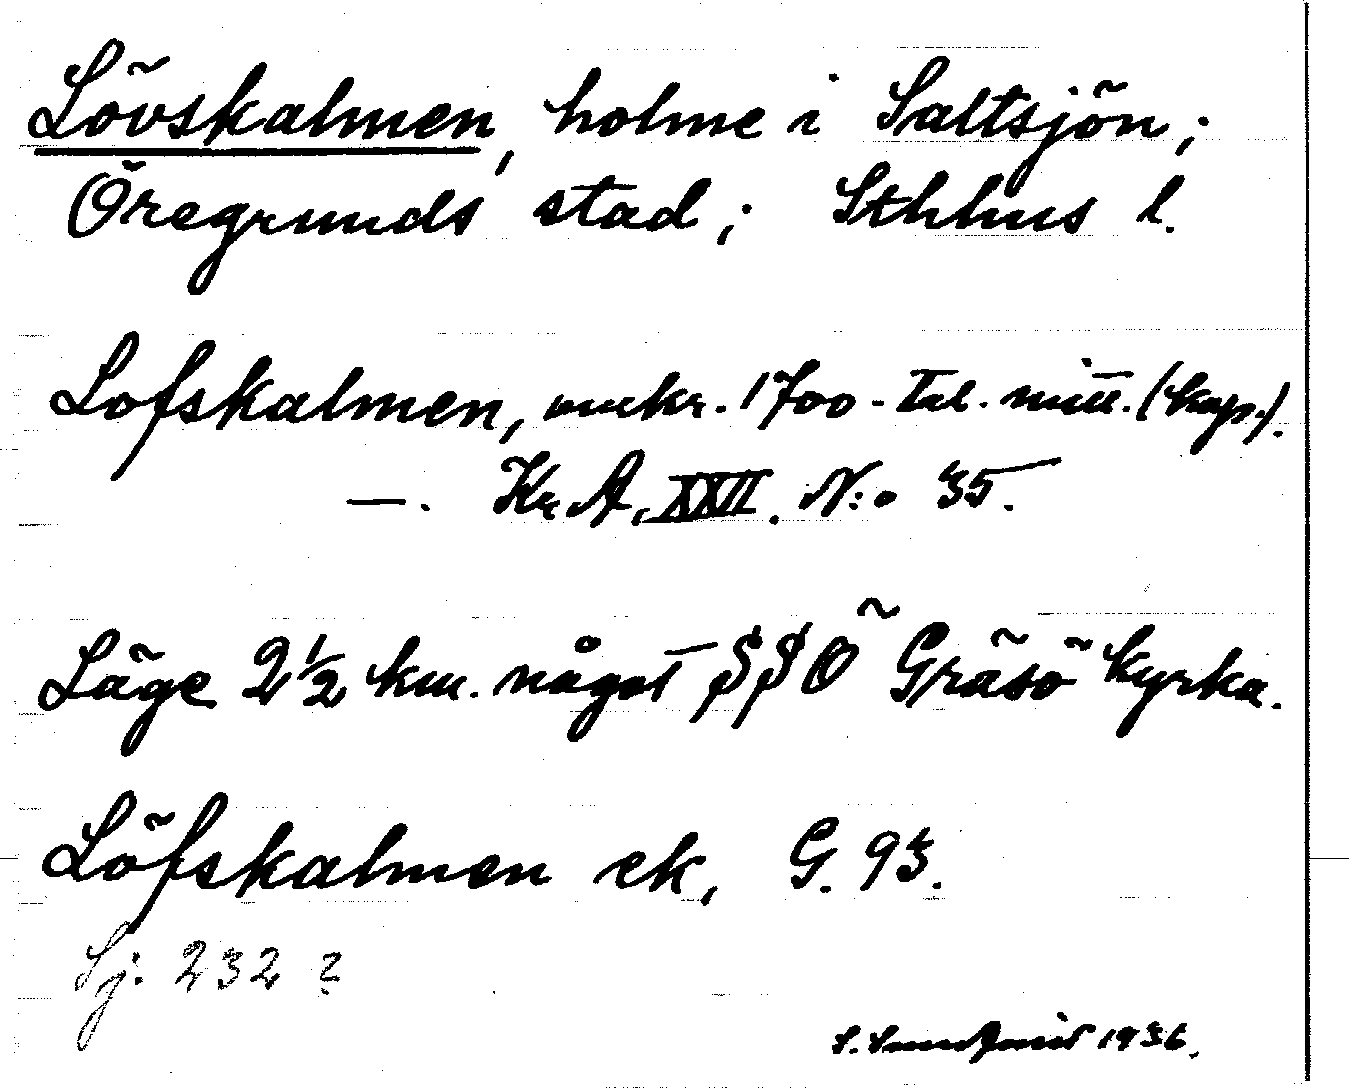 Lövskalmen, holme i Saltsjön;
Öregrunds stad; Sthlms l.
Lofskalmen, omkr. 1700-tal. mitt. (kop.).
—. Kr. A. XXVII. N:o 35.
Läge 2½ km. något SSO Gräsö kyrka.
Löfskalmen ek, G. 93.
Sj: 232 ?
S. 1936.